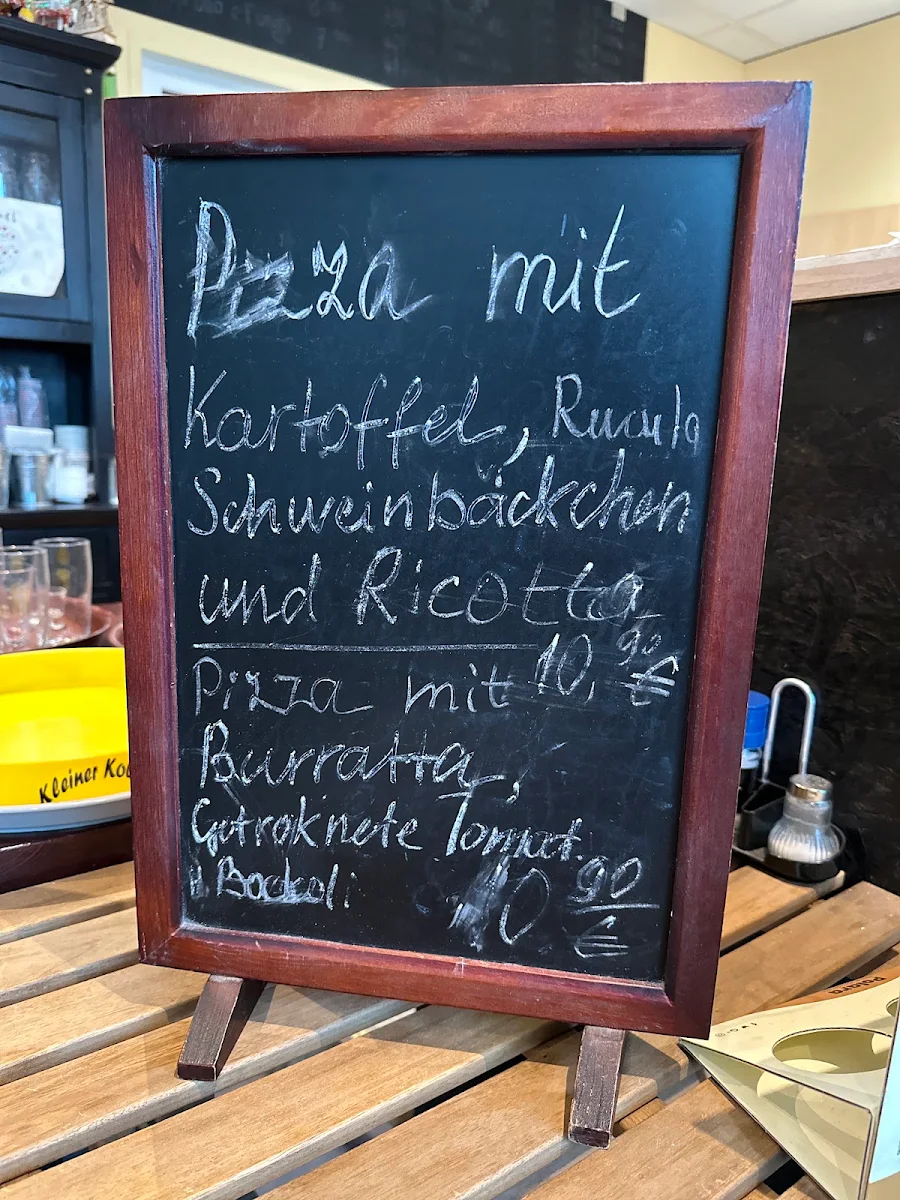 Pizza mit
Kartoffel, Rucula
Schweinbäckchen
und Ricotta
10,90 €
Pizza mit
Burratta,
Getroknete Tomat.
10 90 €
Kleiner